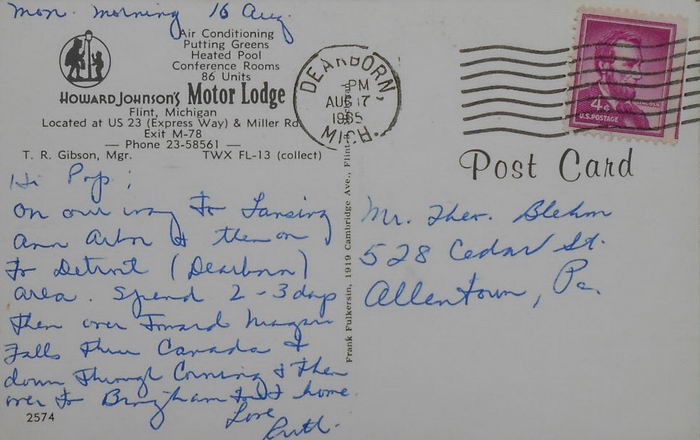 Mon. morning 16 Aug.
Air Conditioning
Putting Greens
Heated Pool
Conference Rooms
86 Units
HOWARD JOHNSON'S Motor Lodge
Flint, Michigan
Located at US 23 (Express Way) & Miller Rd.
Exit M-78
— Phone 23-58561 —
T. R. Gibson, Mgr. TWX FL-13 (collect)
Hi Pop;
On our way to Lansing
Ann Arbor & then on
to Detroit (Dearborn)
area. Spend 2-3 days
then over toward Niagara
Falls thru Canada &
down through Corning & then
over to Binghamton & home.
Love
Ruth.
2574
Frank Fulkersin, 1919 Cambridge Ave., Flint
DEARBORN,
PM
AUG 17
1965
MICH.
4¢
U.S. POSTAGE
Post Card
Mr. Theo. Blehm
528 Cedar St.
Allentown, Pa.